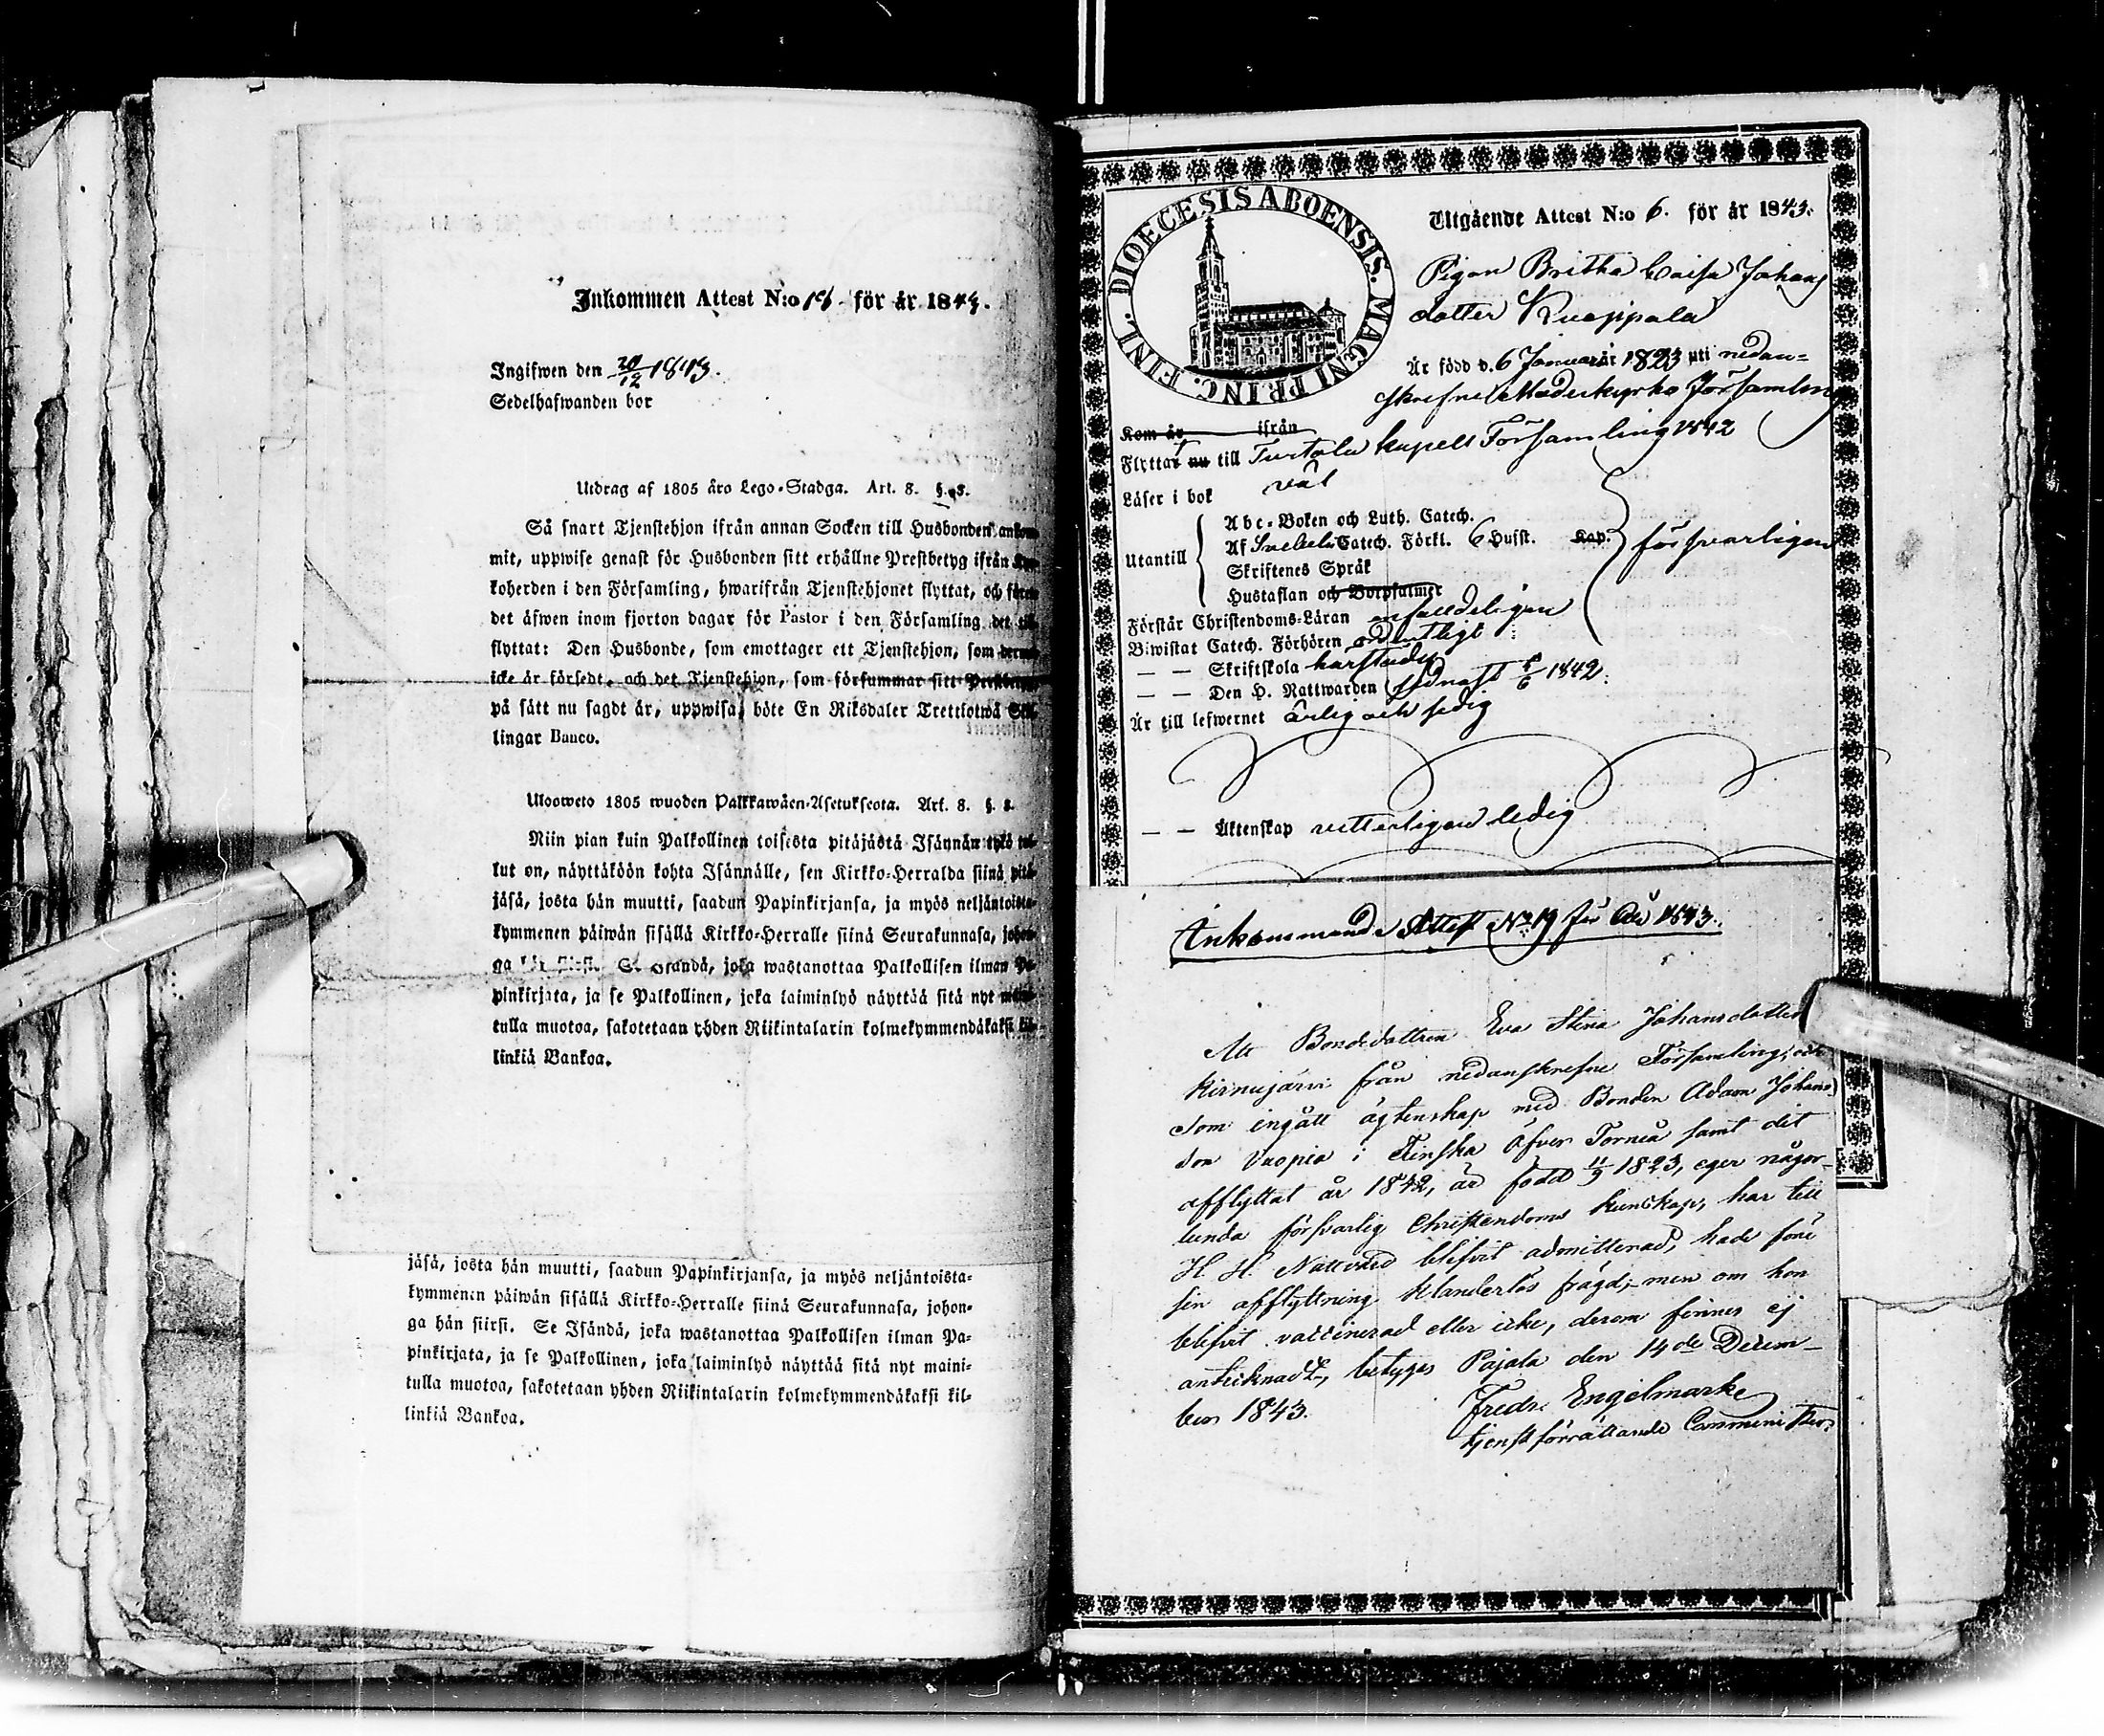 Inkommen Attest N:o 18 för år 1843.
Ingifwen den 20/12 1843.
Sedelhafwanden bor
Utdrag af 1805 års Lego-Stadga. Art. 8. §. 8.
Så snart Tjenstehjon ifrån annan Socken till Husbonden ankom-
mit, uppwise genast för Husbonden sitt erhållne Prestbetyg ifrån
koherden i den Församling, hwarifrån Tjenstehjonet flyttat, och
det äfwen inom fjorton dagar för Pastor i den Församling det
flyttat: Den Husbonde, som emottager ett Tjenstehjon, som
icke är försedt, och det Tjenstehjon, som försummar sitt
på sätt nu sagdt är, uppwisa, böte En Riksdaler Trettiotwå Skil-
lingar Banco.
Ulosweto 1805 wuoden Palkkawäen-Asetuksesta. Art. 8. §. 8.
Niin pian kuin Palkollinen toisesta pitäjästä Isännän tykö tul-
lut on, näyttäköön kohta Isännälle, sen Kirkko-Herralda siinä pitä-
jäsä, josta hän muutti, saadun Papinkirjansa, ja myös neljäntoista-
kymmenen päiwän sisällä Kirkko-Herralle siinä Seurakunnasa, johon-
ga hän siirsi. Se Isändä, joka wastanottaa Palkollisen ilman Pa-
pinkirjata, ja se Palkollinen, joka laiminlyö näyttää sitä nyt maini-
tulla muotoa, sakotetaan yhden Riikintalarin kolmekymmendäkaksi kil-
linkiä Bankoa.
jäsä, josta hän muutti, saadun Papinkirjansa, ja myös neljäntoista-
kymmenen päiwän sisällä Kirkko-Herralle siinä Seurakunnasa, johon-
ga hän siirsi. Se Isändä, joka wastanottaa Palkollisen ilman Pa-
pinkirjata, ja se Palkollinen, joka laiminlyö näyttää sitä nyt maini-
tulla muotoa, sakotetaan yhden Riikintalarin kolmekymmendäkaksi kil-
linkiä Bankoa.
DIOECESIS ABOENSIS. MAGNI PRINC. FINL.
Utgående Attest N:o 6. för år 1843.
Pigan Britha Caisa Johans
dotter Kuoppala
Är född d. 6 Januarii år 1823 uti nedan-
skrefne Moderkyrko Församling
Kom år ifrån
Flyttat nu till Turtola kapell Församling 1842
Läser i bok väl
Utantill
Abc-Boken och Luth. Catech.
Af Svebelii Catech. Förkl. 6 Hufst. Kap.
Skriftenes Språk
Hustaflan och Botpsalmer
försvarligen
Förstår Christendoms-Läran enfaldeligen
Biwistat Catech. Förhören ordentligt
— — Skriftskola
— — Den H. Nattwarden sednast 5/6 1842.
Är till lefwernet ärlig och sedig
— — Äktenskap vitterligen ledig
Inkommande Attest No 19 för År 1843.
Att Bondedottren Eva Stina Johansdotter
Kirnujärvi från nedanskrefne Församling, och
som ingått ägtenskap med Bonden Adam Johans-
son Vuopio i Finska Öfver Torneå samt dit
afflyttat år 1842, är född 11/9 1823, eger någor-
lunda försvarlig Christendoms kunskap, har till
H. H. Nattvard blifvit admitterad, hade före
sin afflyttning klanderlös frägd;- men om hon
blifvit vaccinerad eller icke, derom finnes ej
antecknadt, betygas Pajala den 14de Decem-
ber 1843.
Fredr. Engelmarke
tjenstförrättande Comminister.